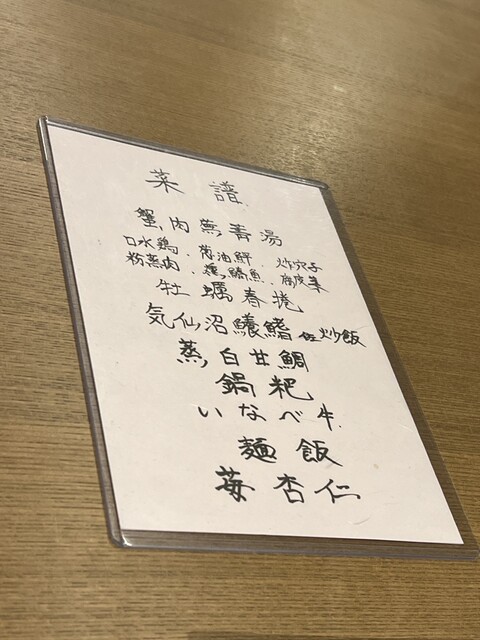 菜譜
蟹肉蕪菁湯
口水鶏・葱油鮃・炸穴子
粉蒸肉・燻鰆魚・腐皮菜
牡蠣春捲
気仙沼鱶鰭 佐炒飯
蒸白甘鯛
鍋粑
いなべ牛
麺飯
苺杏仁